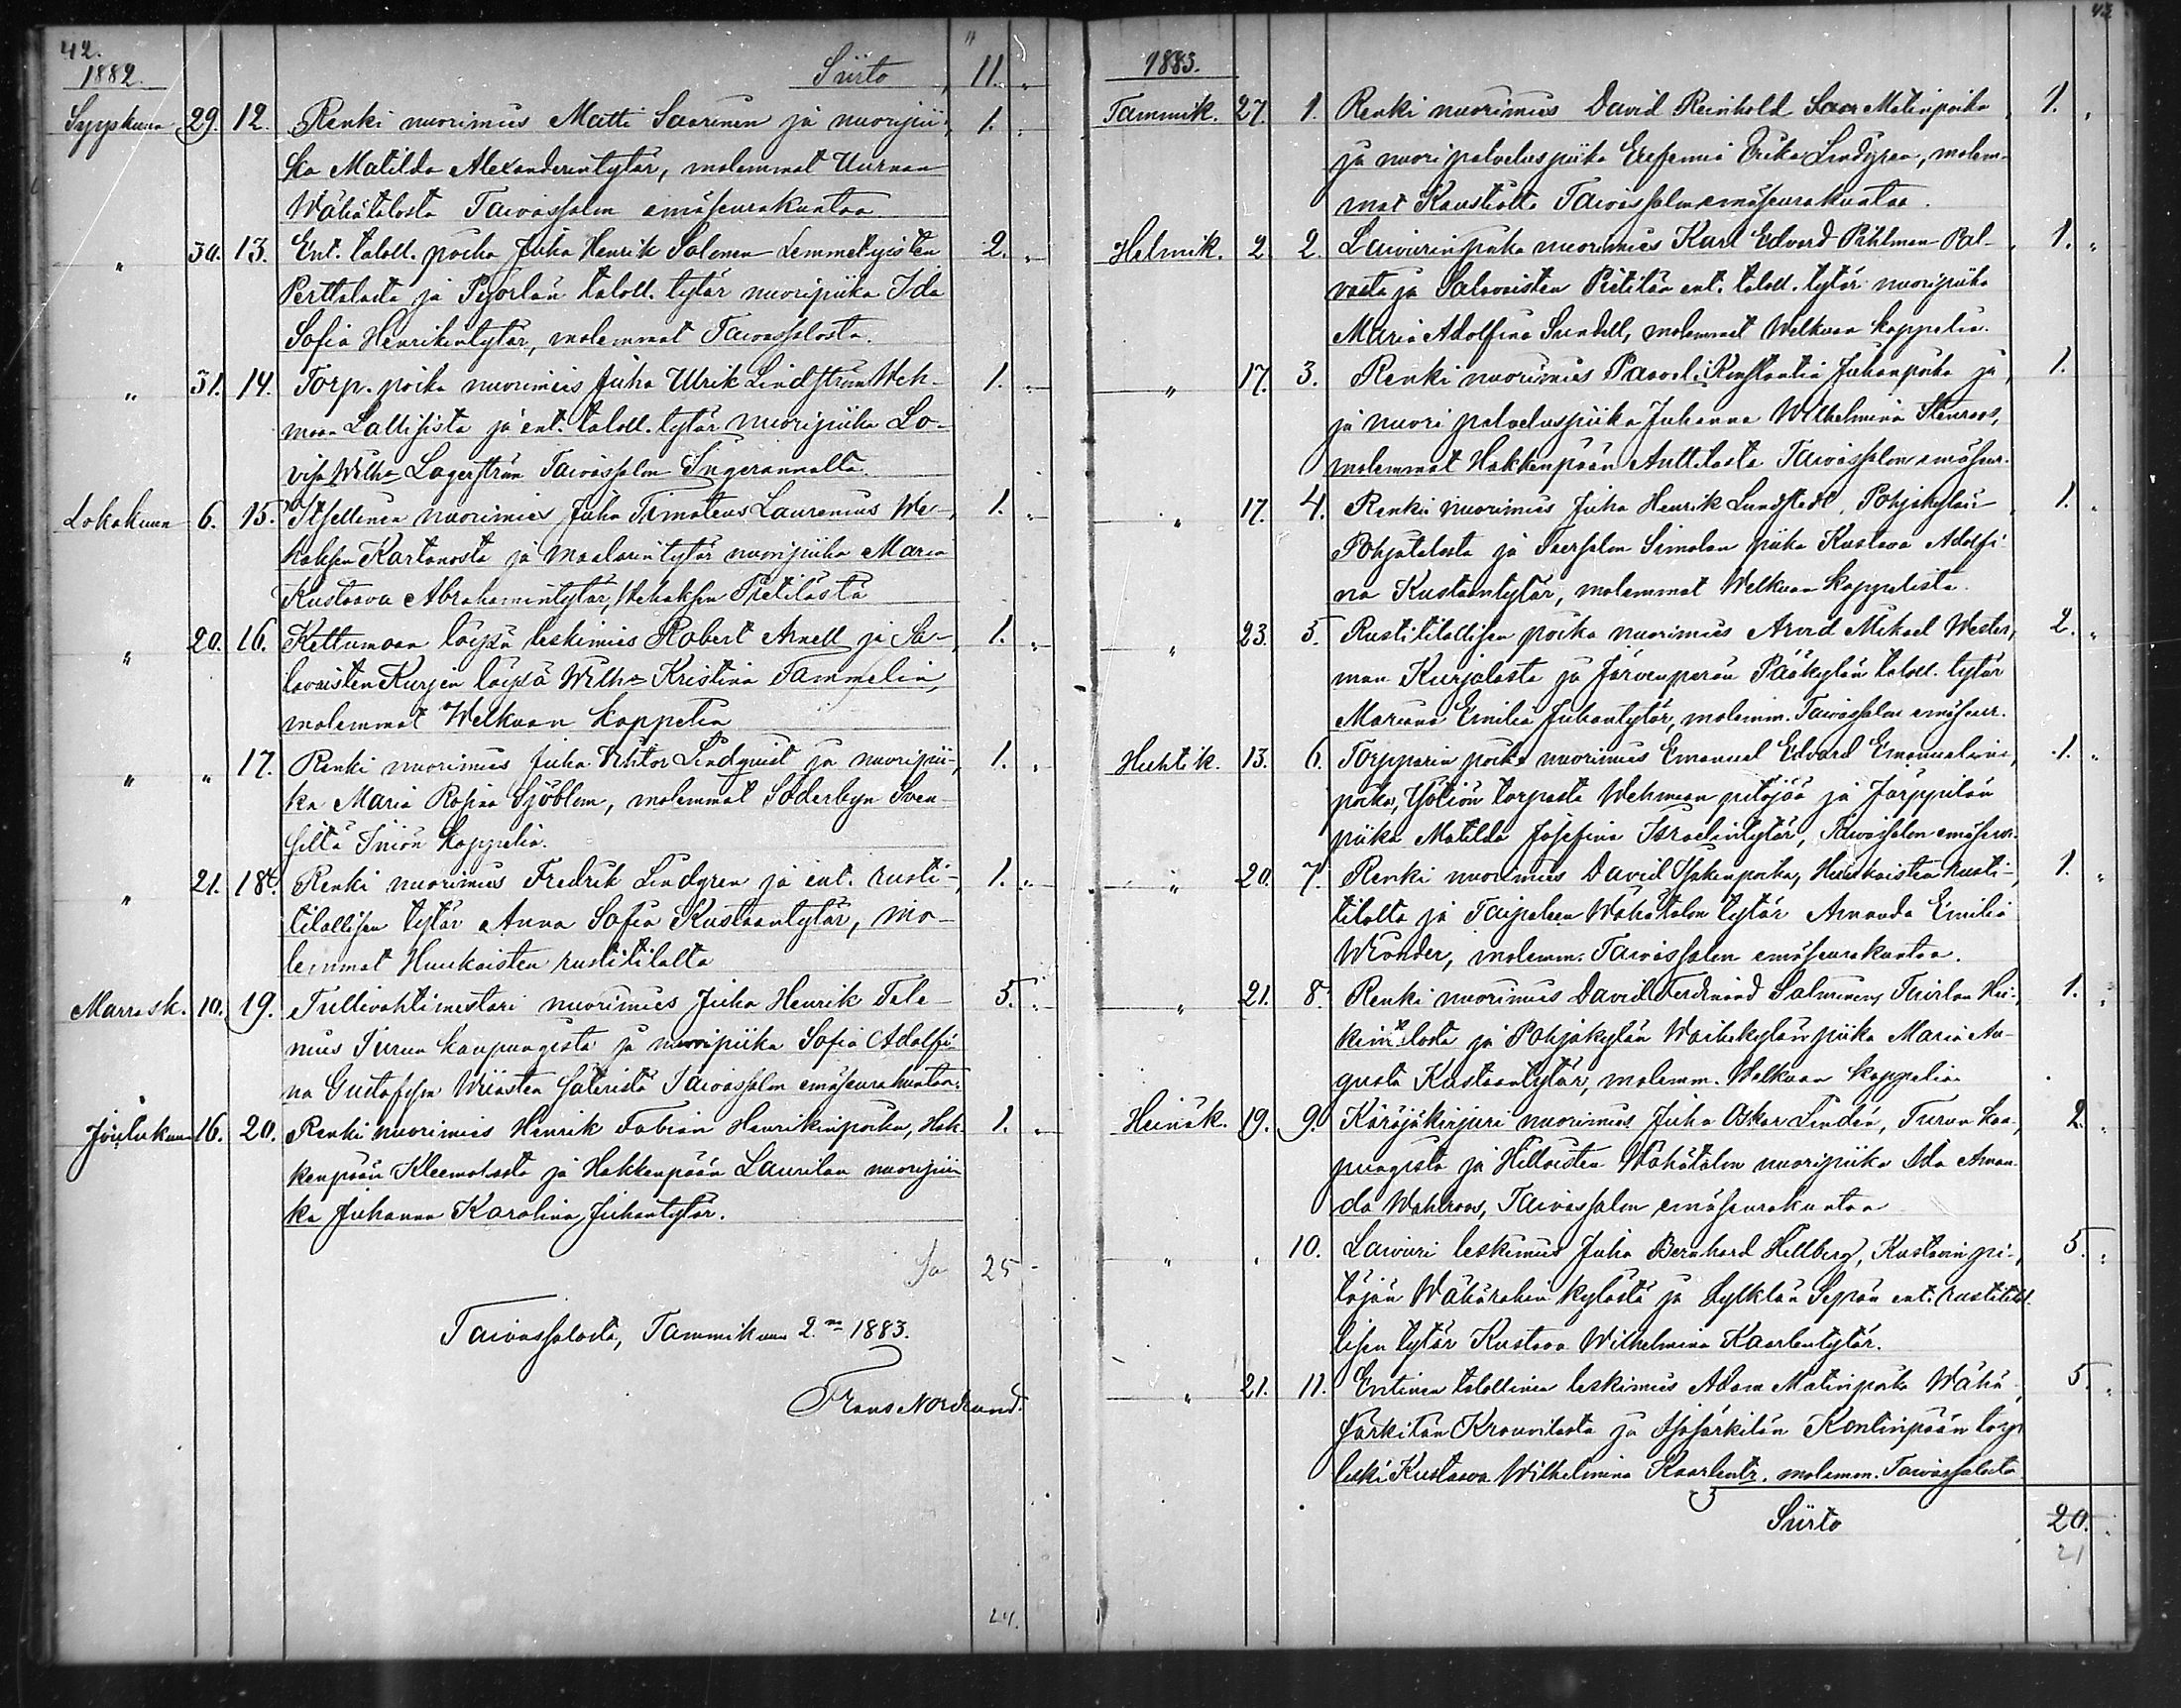 42.
1882.
Siirto 11. "
Syyskuun 29. 12. Renki nuorimies Matti Saarinen ja nuoripii- 1. "
ka Matilda Alexanderintytär, molemmat Uurnan
Wähätalosta Taivassalon emäseurakuntaa
" 30. 13. Ent. taloll. poika Juha Henrik Salonen Lemmetyisten 2. "
Perttalasta ja taloll. tytär nuoripiika Ida
Sofia Henrikintytär, molemmat Taivassalosta.
" 31. 14. Torp. poika nuorimies Juha Ulrik Lindström Weh- 1. "
maan Lallisista ja ent. taloll. tytär nuoripiika Lo-
visa Wilh:a Lagerström Taivassalon Ingerannalta.
Lokakuun 6. 15. Itsellinen nuorimies Juha Timoteus Laurenius We- 1. "
haksen Kartanosta ja maalarin tytär nuoripiika Maria
Kustaava Abrahamintytär, Wehaksen Pretilästä
" 20. 16. Kettumaan loisen leskimies Robert Arnell ja Sa- 1. "
lavaisten Kurjen Wilh:a Kristina Tammelin,
molemmat Welkuan kappelia
" " 17. Renki nuorimies Juha Viktor Lindquist ja nuoripii- 1. "
ka Maria Rosina Sjöblom, molemmat Söderbyn Sven-
siltä Iniön kappelia.
" 21. 18. Renki nuorimies Fredrik Lindgren ja ent. rusti- 1. "
tilallisen tytär Anna Sofia Kustaantytär, mo-
lemmat Huukaisten rustitilalta
Marrask. 10. 19. Tullivahtimestari nuorimies Juha Henrik Tale- 5. "
nius Turun kaupungista ja nuoripiika Sofia Adolfi-
na Gustafsson Wiiasten säteristä Taivassalon emäseurakuntaa.
Joulukuun 16. 20. Renki nuorimies Henrik Fabian Henrikinpoika, Hak- 1. "
kenpään Kleemolasta ja Hakkenpään Laurilan nuoripii-
ka Juhanna Karolina Juhantytär.
Sa 25 -
Taivassalosta, Tammikuun 2.na 1883.
Frans Nordlund.
24.
43
1883.
Tammik. 27. 1. Renki nuorimies David Reinhold Matinpoika 1. "
ja nuori palveluspiika Eufemia Erika Lindgren, molem-
mat Kaustiolta Taivassalon emäseurakuntaa.
Helmik. 2 2. Laivurinpoika nuorimies Karl Edvard Pihlman Pal- 1. "
vasta ja Salavaisten Prätitän ent. taloll. tytär nuoripiika
Maria Adolfina Sundell, molemmat Welkuan kappelia.
" 17. 3. Renki nuorimies Paavali Konstantin Juhanpoika ja 1.
ja nuori palveluspiika Juhanna Wilhelmina Stenroos,
molemmat Hakkenpään Anttilasta Taivassalon emäseur.
" 17. 4. Renki nuorimies Juha Henrik Lundstedt, Pohjakylän 1. "
Pohjatalosta ja Teersalon Simolan piika Kustava Adolfi-
na Kustaantytär, molemmat Welkuan kappelista.
" 23. 5. Rustitilallisen poika nuorimies Arvid Mikael Wester- 2. "
man Kurjalasta ja Järvenperän Pääkylän taloll. tytär
Mariana Emilia Juhantytär, molemm. Taivassalon emäseur.
Huhtik. 13. 6. Torpparin poika nuorimies Emanuel Edvard Emanuelin- 1. "
poika, torpasta Wehmaan pitäjää ja Järppilän
piika Matilda Josefina Israelintytär, Taivassalon emäseur.
" 20. 7. Renki nuorimies David Isakinpoika, Huukaisten rusti- 1. "
tilalta ja Taipaleen Wähätalon tytär Amanda Emilia
Wonder, molemm. Taivassalon emäseurakuntaa.
" 21. 8. Renki nuorimies David Ferdinand Salminen, Tuirlan Hei- 1. "
kintalosta ja Pohjakylän Waihekylän piika Maria Au-
gusta Kustaantytär, molemm. Welkuan kappelia
Heinäk. 19. 9. Käräjäkirjuri nuorimies Juha Oskar Lindén, Turun kau- 2. "
pungista ja Hilloisten Wähätalon nuoripiika Ida Aman-
da Wahlroos, Taivassalon emäseurakuntaa
" " 10. Laivuri leskimies Juha Bernhard Hellberg, Kustavin pi- 5. "
täjän Wähärahin kylästä ja Lylklän Sepän ent. rustitilal-
lisen tytär Kustava Wilhelmina Kaarlentytär.
" 21. 11. Entinen talollinen leskimies Adam Matinpoika Wähä- 5. "
Särkilän Krouvilasta ja Isosärkilän Kontinpään torp.
leski Kustaava Wilhelmina Kaarlentr. molemm. Taivassalosta
Siirto 20. "
21